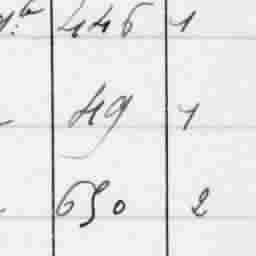 446 1
49 1
650 2